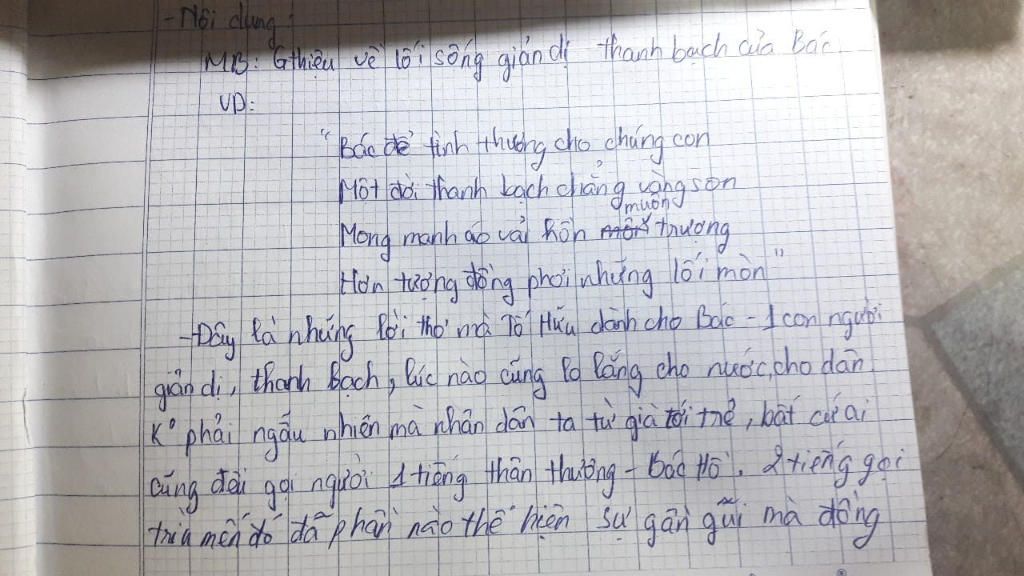 - Nội dung:
MB: Gthiệu về lối sống giản dị thanh bạch của Bác
VD:
"Bác để tình thương cho chúng con
Một đời thanh bạch chẳng vàng son
Mong manh áo vải hồn muôn trượng
Hơn tượng đồng phơi những lối mòn"
- Đây là những lời thơ mà Tố Hữu dành cho Bác - 1 con người
giản dị, thanh bạch, lúc nào cũng lo lắng cho nước, cho dân.
K° phải ngẫu nhiên mà nhân dân ta từ già tới trẻ, bất cứ ai
cũng đều gọi người 1 tiếng thân thương - Bác Hồ. 2 tiếng gọi
trìu mến đó đã phần nào thể hiện sự gần gũi mà đồng